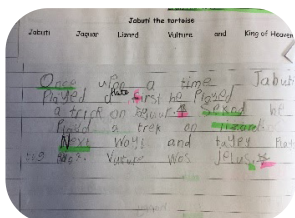 Jabuti the tortoise
Jabuti Jaguar Lizard Vulture and King of Heaven
Once upon a time Jabuti
Played a first he Played
a trick on Jaguar. Seknd he
Playd a trek on lizard
Next was and
Vuture was jelus